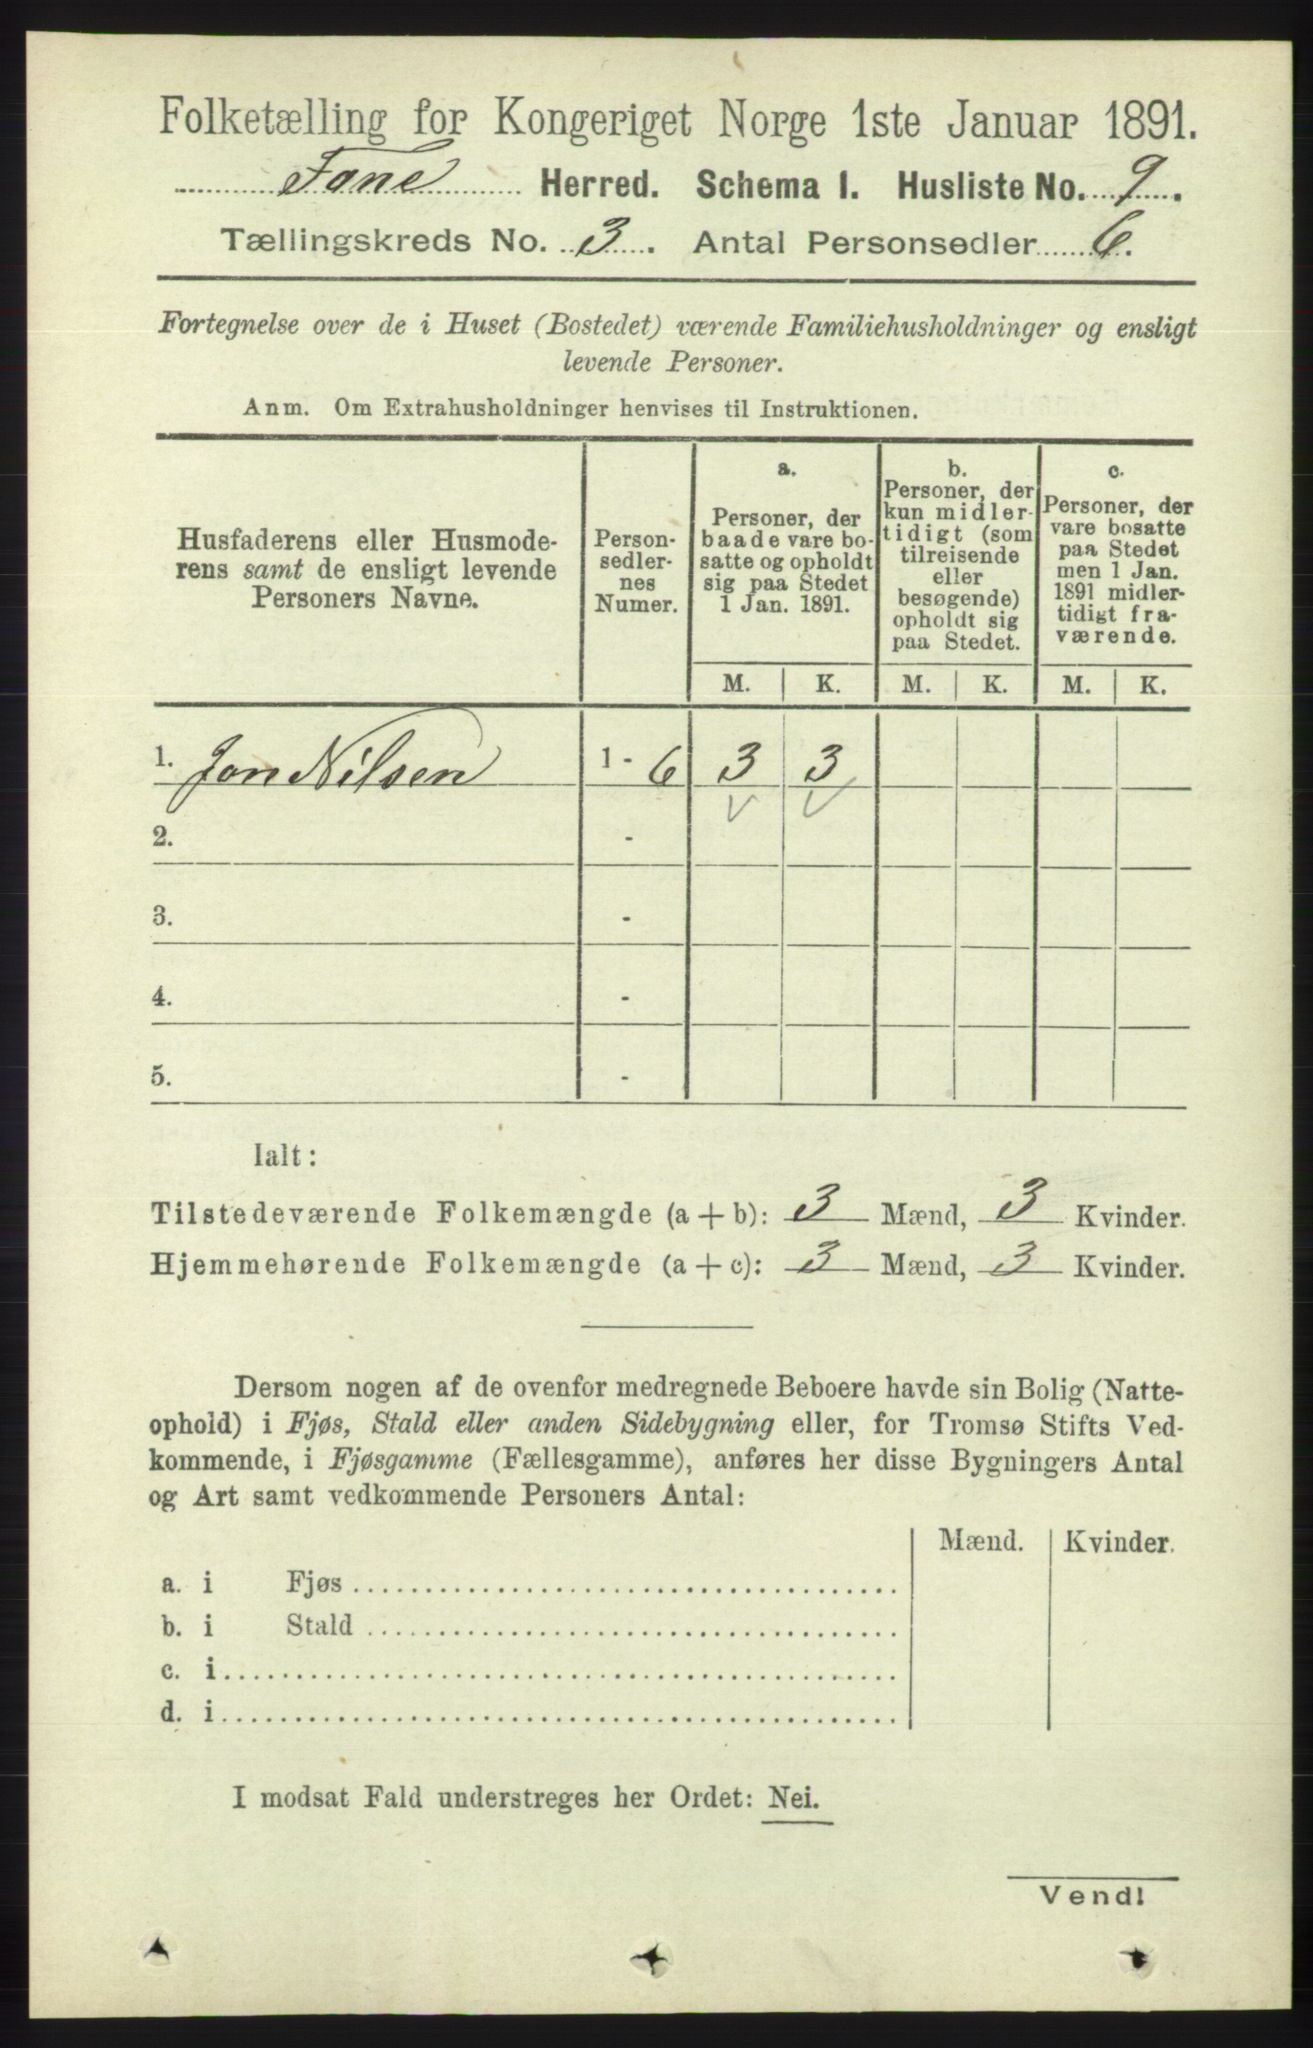 Folketælling for Kongeriget Norge 1ste Januar 1891.
Fane Herred. Schema 1. Husliste No. 9.
Tællingskreds No. 3. Antal Personsedler 6.
Fortegnelse over de i Huset (Bostedet) værende Familiehusholdninger og ensligt
levende Personer.
Anm. Om Extrahusholdninger henvises til Instruktionen.
Husfaderens eller Husmode-
rens samt de ensligt levende
Personers Navne.
Person-
sedler-
nes
Numer.
a.
Personer, der
baade vare bo-
satte og opholdt
sig paa Stedet
1 Jan. 1891.
b.
Personer, der
kun midler-
tidigt (som
tilreisende
eller
besøgende)
opholdt sig
paa Stedet.
c.
Personer, der
vare bosatte
paa Stedet
men 1 Jan.
1891 midler-
tidigt fra-
værende.
M. K. M. K. M. K.
1. Jon Nilsen 1 - 6 3 3
2. -
3. -
4. -
5. -
Ialt:
Tilstedeværende Folkemængde (a + b): 3 Mænd, 3 Kvinder.
Hjemmehørende Folkemængde (a + c): 3 Mænd, 3 Kvinder.
Dersom nogen af de ovenfor medregnede Beboere havde sin Bolig (Natte-
ophold) i Fjøs, Stald eller anden Sidebygning eller, for Tromsø Stifts Ved-
kommende, i Fjøsgamme (Fællesgamme), anføres her disse Bygningers Antal
og Art samt vedkommende Personers Antal:
Mænd. Kvinder.
a. i Fjøs
b. i Stald
c. i
d. i
I modsat Fald understreges her Ordet: Nei.
Vend!